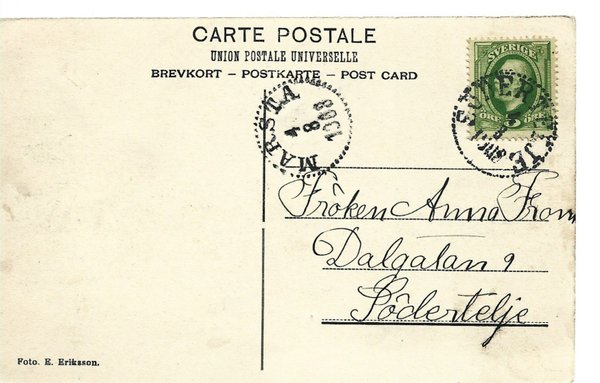 CARTE POSTALE
UNION POSTALE UNIVERSELLE
BREVKORT – POSTKARTE – POST CARD
SVERIGE
ÖRE 5 ÖRE
MÄRSTA
4
8
1908
Fröken Anna From
Dalgatan 9
Södertelje
Foto. E. Eriksson.